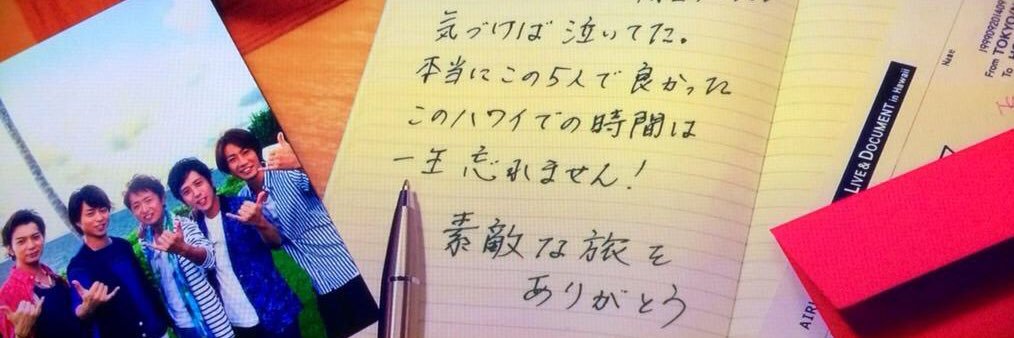 気づけば泣いてた。
本当にこの5人で良かった
このハワイでの時間は
一生忘れません！
素敵な旅を
ありがとう
LIVE & DOCUMENT in Hawaii
Name
199909201409
From TOKYO
To